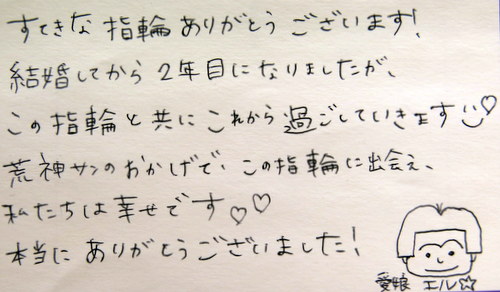 すてきな指輪ありがとうございます!
結婚してから2年目になりましたが、
この指輪と共にこれから過ごしていきます♡
荒神サンのおかげで、この指輪に出会え、
私たちは幸せです♡♡
本当にありがとうございました!
愛娘 エル☆